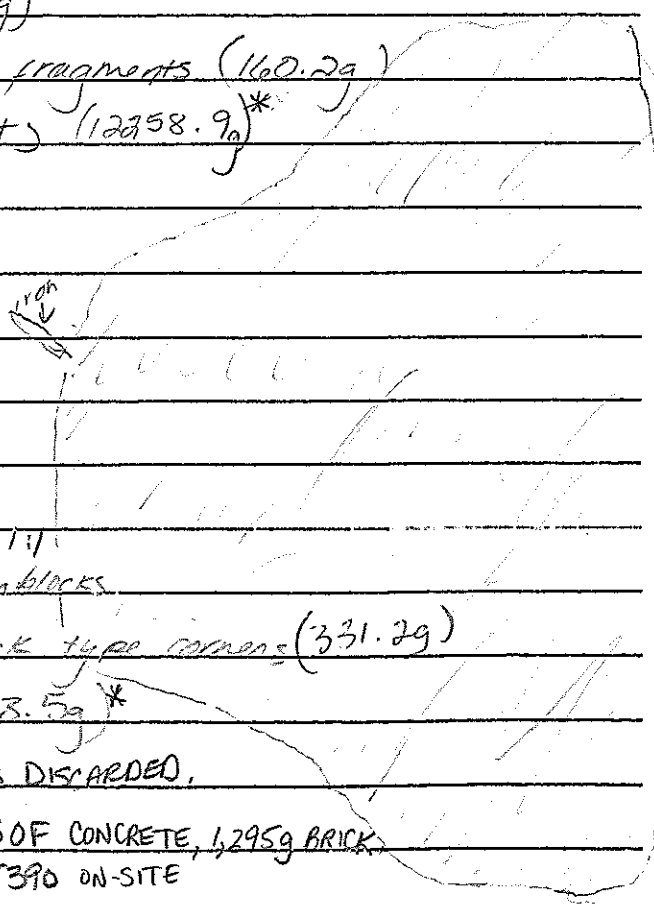 g)
fragments (160.2g)
(12258.9g)*
iron
blocks
type (331.2g)
3.5g)*
DISCARDED.
OF CONCRETE, 1,295g BRICK,
390 ON-SITE